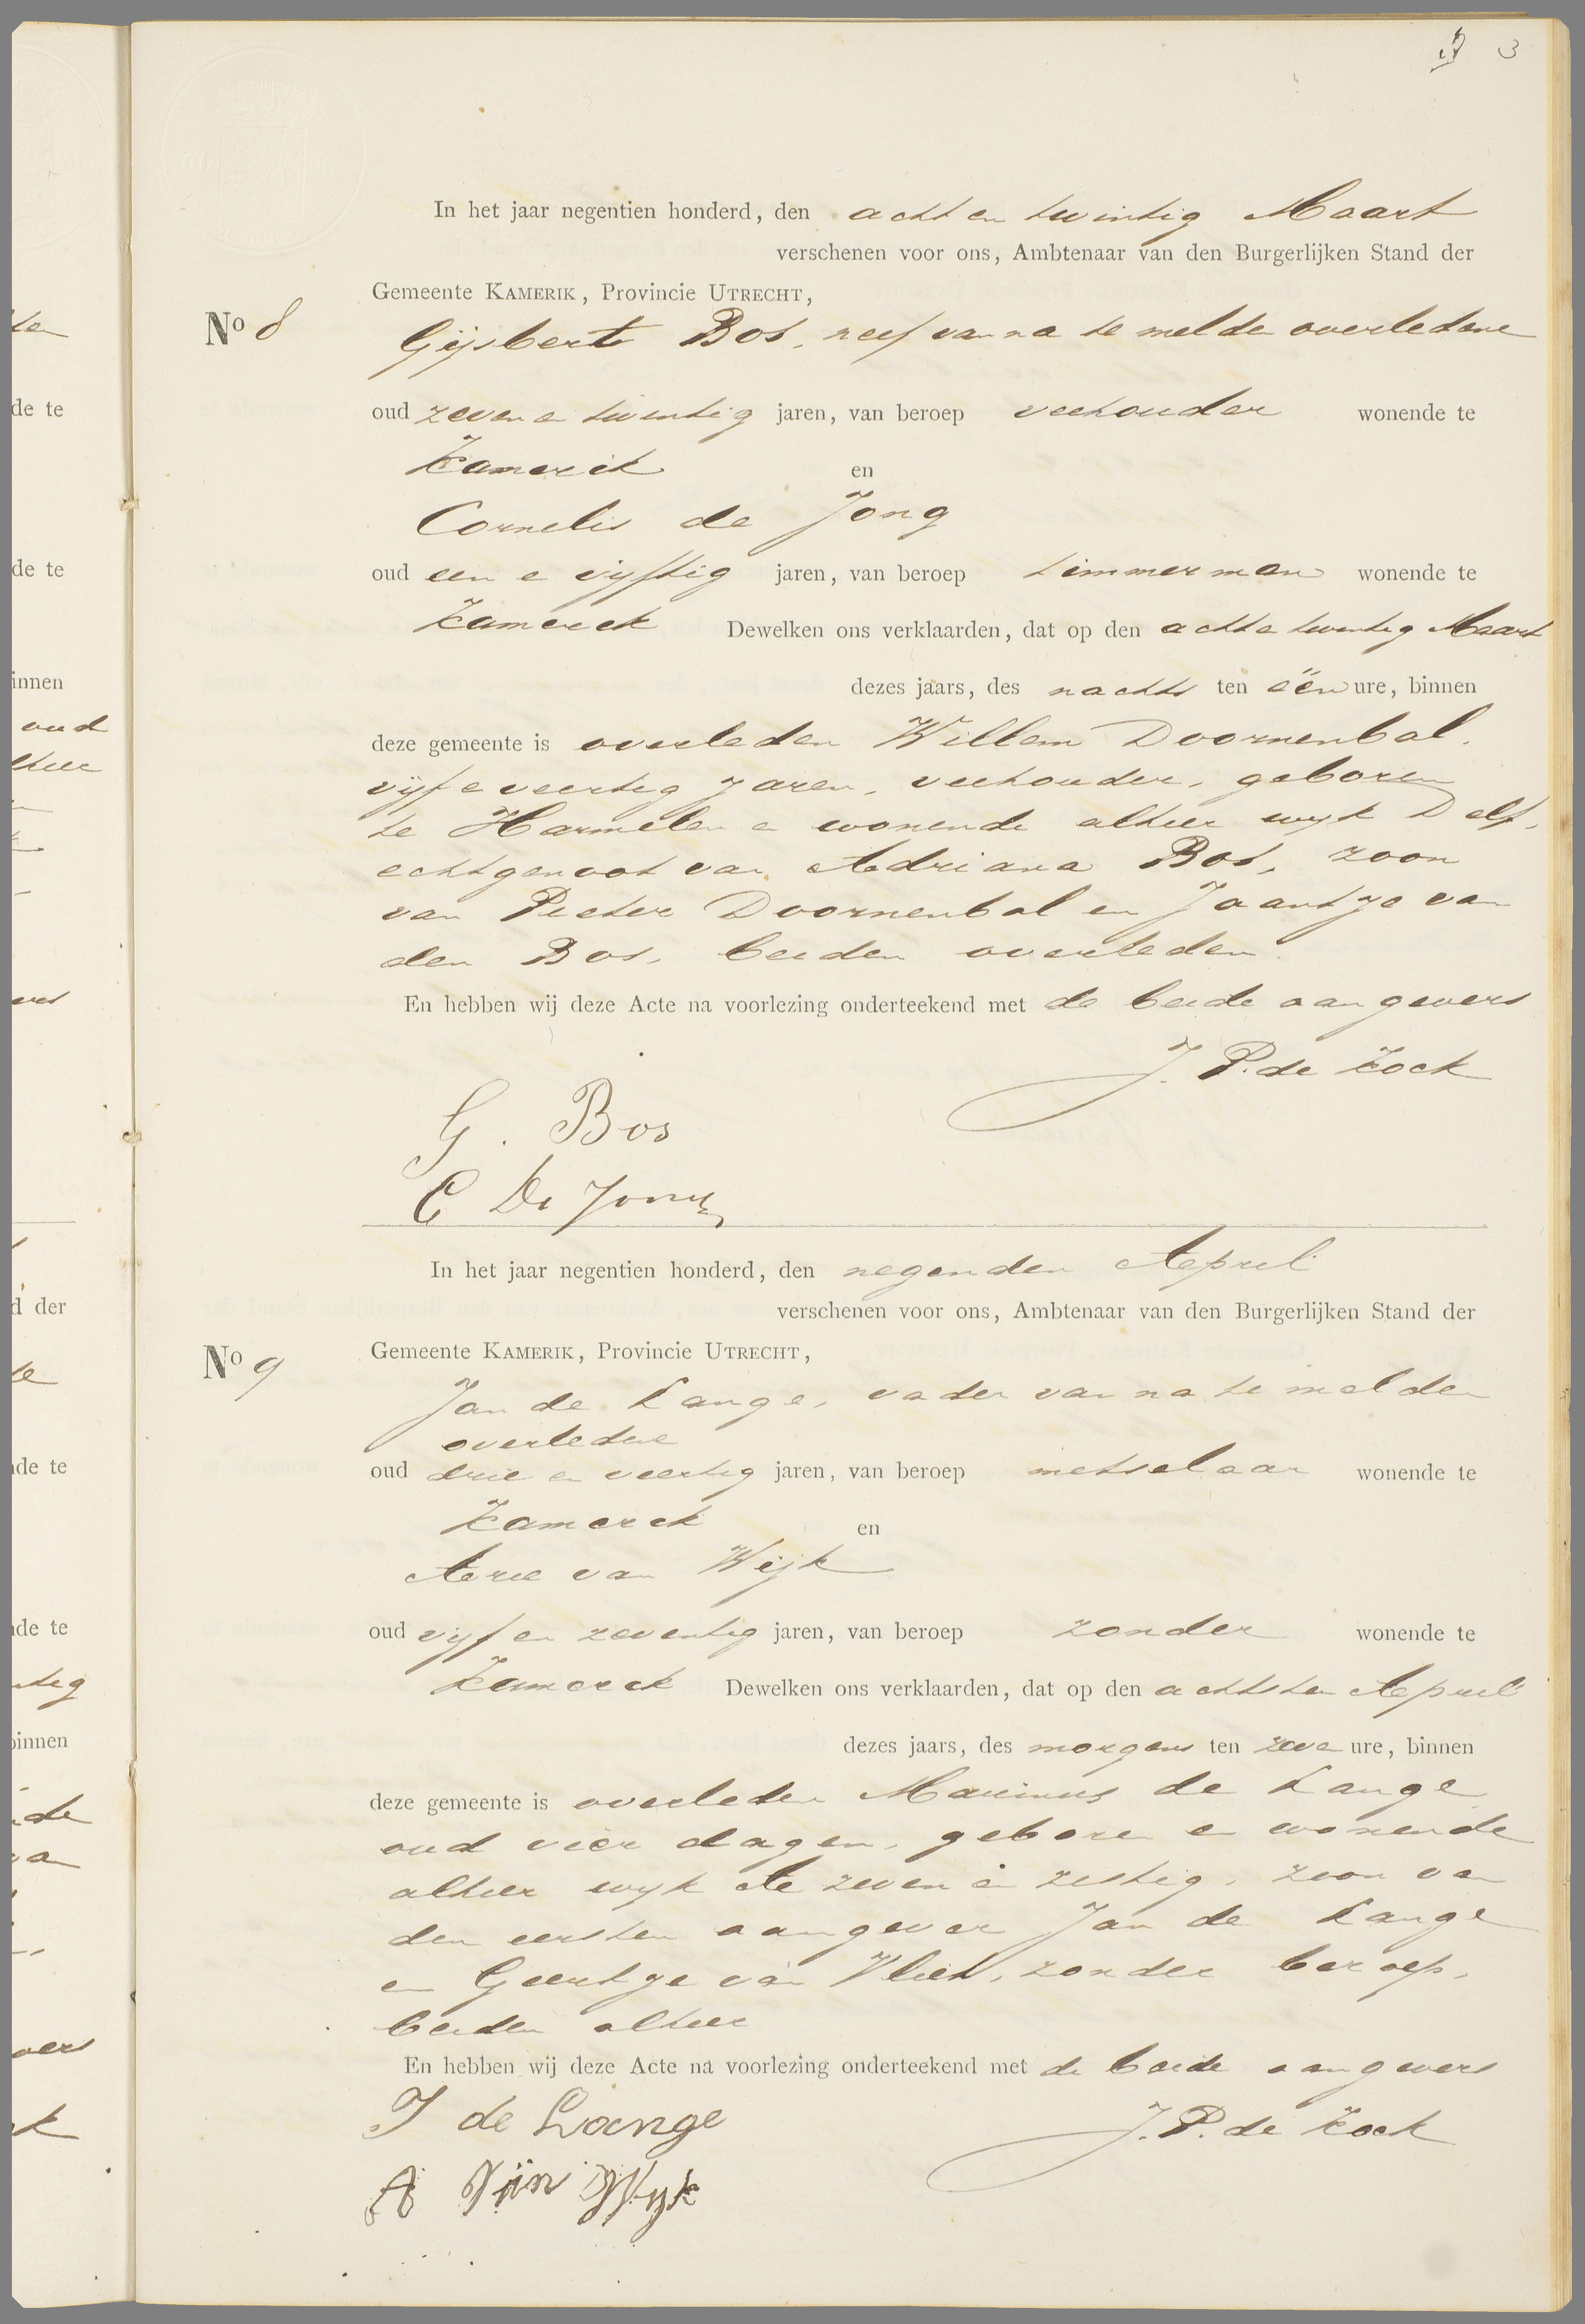 3
In het jaar negentien honderd, den acht en twintig Maart
verschenen voor ons, Ambtenaar van den Burgerlijken Stand der
Gemeente KAMERIK, Provincie UTRECHT,
No 8
Gijsbert Bos, neef van na te melden overledene
oud zeven en twintig jaren, van beroep veehouder wonende te
Kamerik en
Cornelis de Jong
oud een en vijftig jaren, van beroep timmerman wonende te
Kamerik Dewelken ons verklaarden, dat op den acht en twintig Maart
dezes jaars, des nachts ten één ure, binnen
deze gemeente is overleden Willem Doornenbal,
vijf en veertig jaren, veehouder, geboren
te Harmelen en wonende alhier wijk D elf,
echtgenoot van Adriana Bos, zoon
van Pieter Doornenbal en Jaantje van
den Bos, beiden overleden.
En hebben wij deze Acte na voorlezing onderteekend met de beide aangevers
J. P. de Kock
G. Bos
C De Jong
In het jaar negentien honderd, den negenden April
verschenen voor ons, Ambtenaar van den Burgerlijken Stand der
Gemeente KAMERIK, Provincie UTRECHT,
No 9
Jan de Lange, vader van na te melden
overledene
oud drie en veertig jaren, van beroep metselaar wonende te
Kamerik en
Arie van Wijk
oud vijf en zeventig jaren, van beroep zonder wonende te
Kamerik Dewelken ons verklaarden, dat op den achtsten April
dezes jaars, des morgens ten zeven ure, binnen
deze gemeente is overleden Marinus de Lange
oud vier dagen, geboren en wonende
alhier wijk A zeven en zestig, zoon van
den eersten aangever Jan de Lange
en Geertje van Vliet, zonder beroep,
beiden alhier
En hebben wij deze Acte na voorlezing onderteekend met de beide aangevers
J. P. de Kock
J de Lange
A Van Wijk